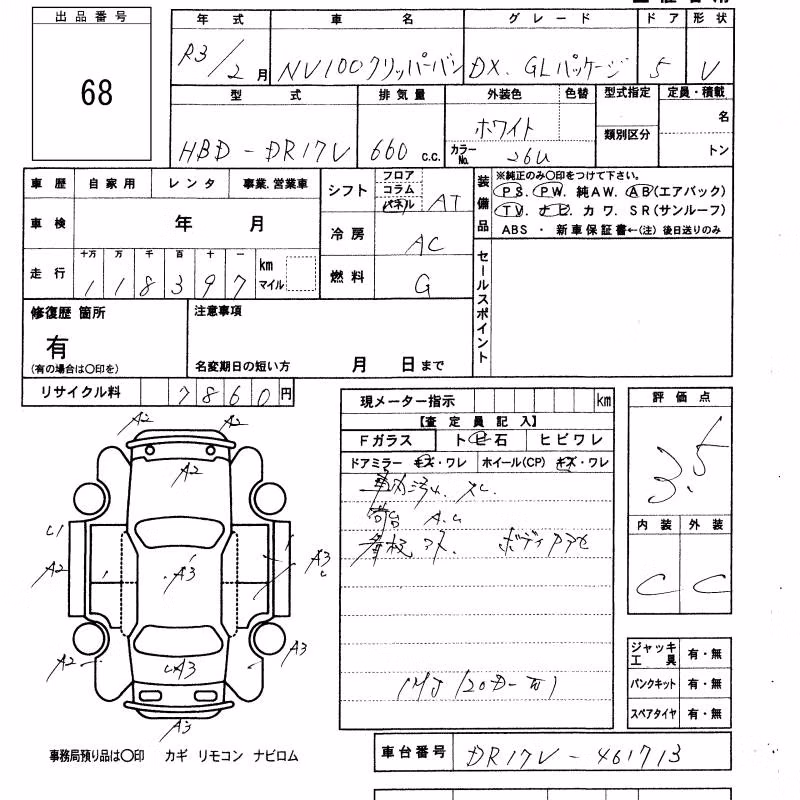 出品番号
68
年式 車名 グレード ドア 形状
R3/2月 NV100クリッパーバン DX. GLパッケージ 5 V
型式 排気量 外装色 色替 型式指定 定員・積載
HBD-DR17V 660 c.c. ホワイト 類別区分 名
カラーNo. 26U トン
車歴 自家用 レンタ 事業.営業車
車検 年 月
走行 十万 万 千 百 十 一
118397 km マイル
シフト フロア コラム パネル AT
冷房 AC
燃料 G
装備品
※純正のみ〇印をつけて下さい。
PS. PW. 純AW. AB(エアバック)
TV. ナビ. カワ. SR(サンルーフ)
ABS ・ 新車保証書←(注) 後日送りのみ
セールスポイント
修復歴 箇所
有
(有の場合は〇印を)
注意事項
名変期日の短い方 月 日まで
リサイクル料 7860円
現メーター指示 km
【査定員記入】
Fガラス トビ石 ヒビワレ
ドアミラー キズ・ワレ ホイール(CP) キズ・ワレ
車内汚れ. スレ.
荷台 A.U
看板アト. ボディアセ
評価点
3.5
内装 外装
C C
A2 A2
A2
L1
A2
A3
A3
A2
LA3
A3
A3
ジャッキ工具 有・無
パンクキット 有・無
スペアタイヤ 有・無
事務局預り品は〇印 カギ リモコン ナビロム
車台番号 DR17V-461713